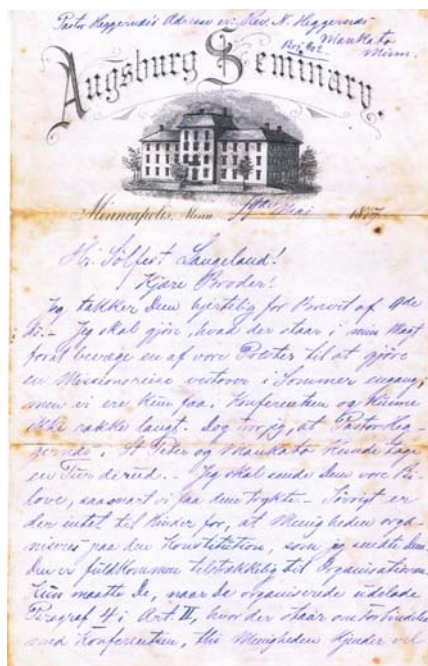 Pastor Heggernæs Adresse er: Rev. N. Heggernæs
Mankato
Minn.
Augsburg Seminary.
Minneapolis, Minn. Mai 187
Hr. Solfest Langeland!
Kjære Broder!
Jeg takker Dem hjertelig for Brevet af
Jeg skal gjøre, hvad der staar i min Magt
for at bevæge en af vore Præster til at gjøre
en Missionsreise vestover i Sommer engang,
men vi ere kun faa i Konferentsen og kunne
ikke række langt. Dog tror jeg, at Pastor Heg-
gernæs i St Peter og Mankato kunde tage
en Tur derud. - Jeg skal sende Dem vore Bi-
love, saasnart vi faa dem trykte. - Iøvrigt er
der intet til Hinder for, at Menigheden orga-
niseres paa den Konstitution, som jeg sendte Dem.
Den er fuldkommen tilstrækkelig til Organisationen.
Kun maatte De, naar De organiserede udelade
Paragraf 4 i Art. II, hvor der staar om Forbindelsen
med Konferentsen, thi Menigheden kjender vel